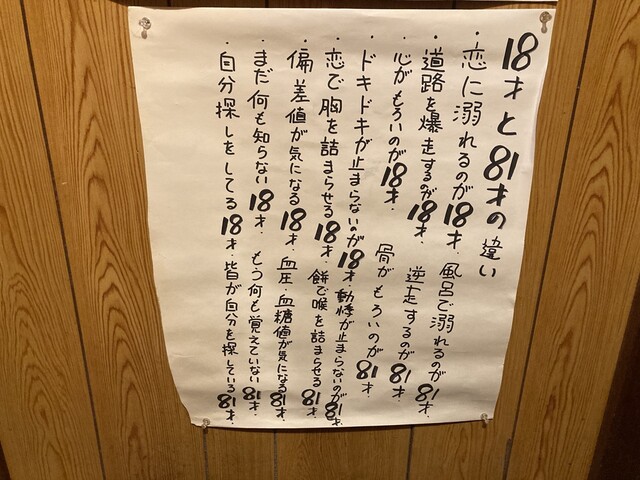 18才と81才の違い
・恋に溺れるのが18才. 風呂で溺れるのが81才.
・道路を爆走するのが18才. 逆走するのが81才.
・心がもろいのが18才. 骨がもろいのが81才.
・ドキドキが止まらないのが18才. 動悸が止まらないのが81才.
・恋で胸を詰まらせる18才. 餅で喉を詰まらせる81才.
・偏差値が気になる18才. 血圧・血糖値が気になる81才.
・まだ何も知らない18才. もう何も覚えていない81才.
・自分探しをしてる18才. 皆が自分を探している81才.